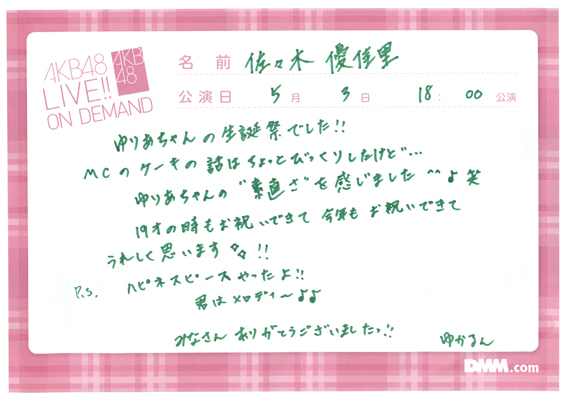 AKB48
LIVE!!
ON DEMAND
AKB
48
名前 佐々木 優佳里
公演日 5月 3日 18:00公演
ゆりあちゃんの生誕祭でした!!
MCのケーキの話はちょっとびっくりしたけど…
ゆりあちゃんの"素直さ"を感じました^^♪笑
19才の時もお祝いできて 今年も お祝いできて
うれしく思います!!
P.S. ハピネスピース やったよ!!
君はメロディー〜♪♪
みなさん ありがとうございましたっ!!
ゆかるん
DMM.com